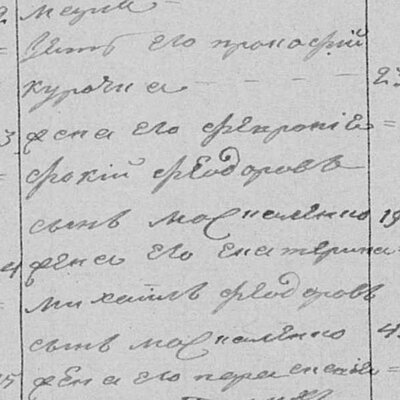 зять его прокофій
курочка 23
3 жена его февронія =
фокій феодоровъ
сынъ москаленко 19
4 жена его екатерина
михаилъ феодоровъ
сынъ москаленко 4
5 жена его параскевія